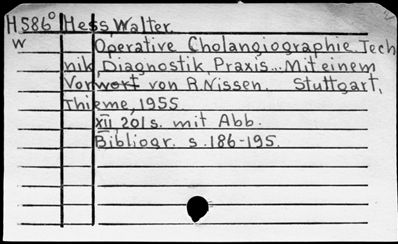 H586° Hess, Walter.
W Operative Cholangiographie Tech
nik, Diagnostik, Praxis... Mit einem
Vorwort von R. Nissen. Stuttgart,
Thieme, 1955.
XII, 201s. mit Abb.
Bibliogr. s. 186-195.